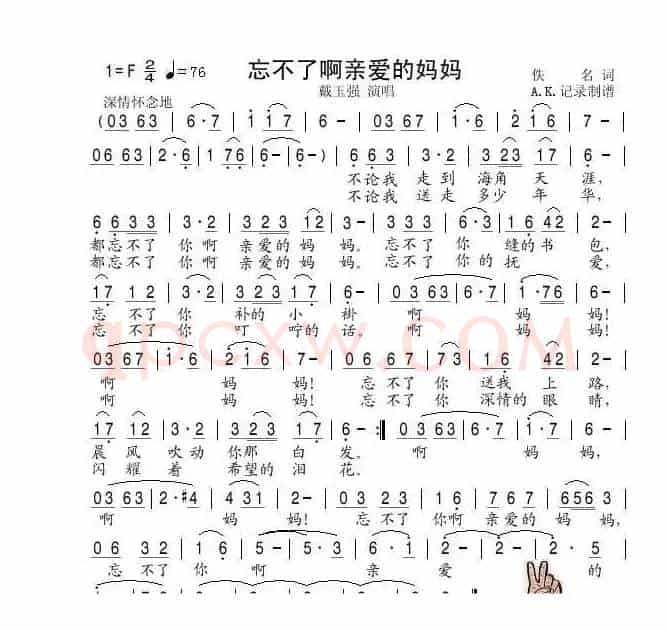 忘不了啊亲爱的妈妈
1=F 2/4 ♩=76
戴玉强 演唱
佚 名 词
A.K.记录制谱
深情怀念地
(0 3 6 3 | 6·7 | 1 1 7 | 6- | 0 3 6 3 | 1·6 | 2 1 2 | 6- |
0 6 6 3 | 3·2 | 2·6 | 1 7 6 | 6- | 6-) | 6 6 3 | 3·2 | 3 2 3 | 1 7 | 6- |
不论我 走到 海角 天 涯,
不论我 送走 多少 年 华,
6 6 3 3 | 3·2 | 3 2 3 | 1 2 | 3- | 0 3 6 6 | 6·3 | 1 6 4 2 | 2- |
都忘不了 你啊 亲爱的妈 妈。 忘不了 你 缝的书 包,
都忘不了 你啊 亲爱的妈 妈。 忘不了 你的抚 爱,
1 7 1 2 | 3·2 | 3 2 3 1 7 | 6- | 0 3 6 3 | 6·7 | 1·7 6 | 6- |
忘 不了你 补的小 褂 啊 妈 妈!
忘 不了你 叮咛的话, 啊 妈 妈!
qpcxw.COM
0 3 6 7 | 1·6 | 2 1 7 | 6- | 0 6 6 7 | 7 3 | 1 1 6 | 4 2 | 2- |
啊 妈 妈! 忘不了 你 送我 上 路,
啊 妈 妈! 忘不了 你 深情的眼 睛,
1 7 1 2 | 3·2 | 3 2 3 | 1 7 | 6- :| 0 3 6 3 | 6·7 | 1·7 | 6- |
晨 风 吹动 你那 白 发。 啊 妈 妈,
闪 耀 着 希望的泪 花。
0 3 6 3 | 2·#4 | 4 3 1 | 2- | 0 3 4 4 | 3 2 | 1 6 | 7 6 7 | 6 5 6 3 |
啊 妈 妈! 忘不了 你啊 亲爱的妈 妈,
0 6 3 2 | 2· | 1 6 | 5- | 5·3 | 6·1 | 2- | 2·5 |
忘不了 你 啊 亲 爱 的